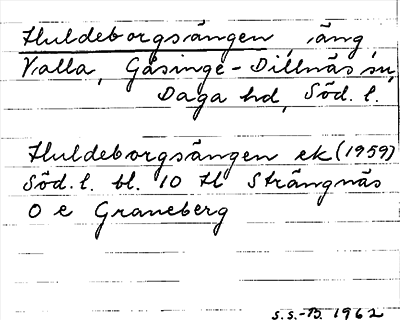 Huldeborgsängen, äng,
Valla, Gåsinge-Dillnäs sn,
Daga hd, Söd. l.
Huldeborgsängen ek (1959)
Söd. l. bl. 10 tl Strängnäs
O e Graneberg
S.S.-B. 1962